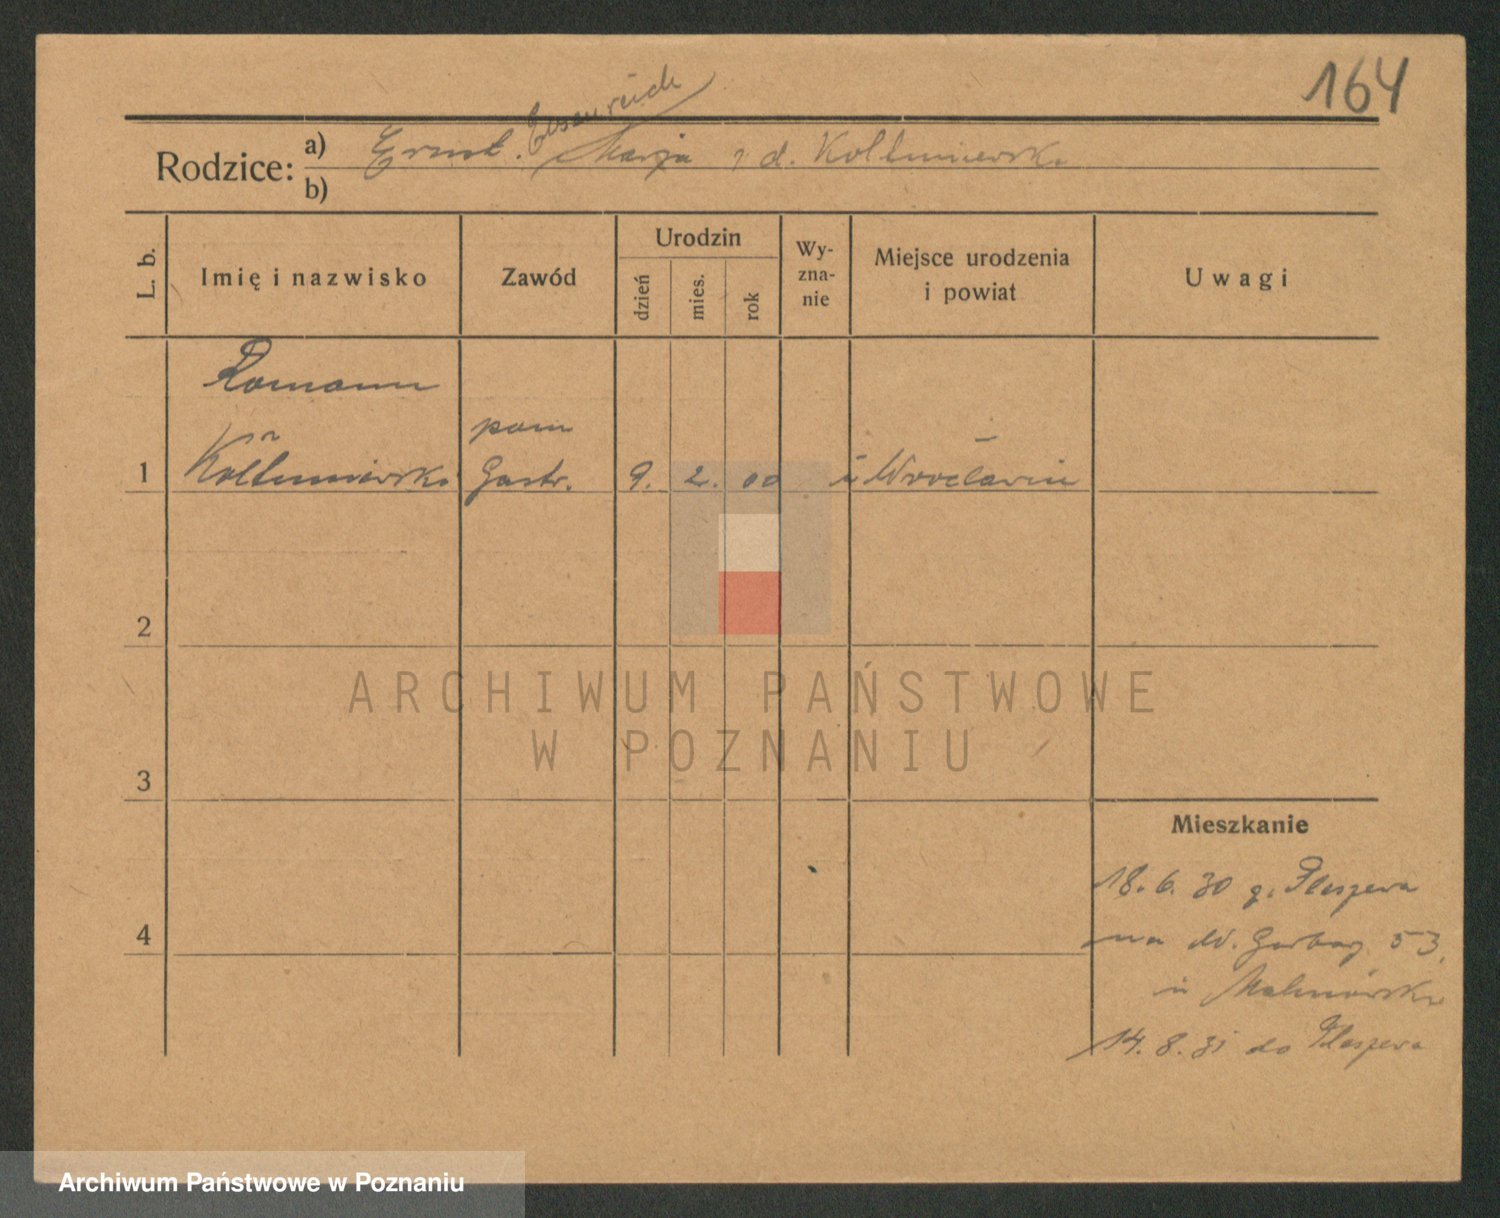 164
Eisenreich
Rodzice: a) Ernst. Marja z d. Koltuniewska
b)
L. b. Imię i nazwisko Zawód Urodzin dzień mies. rok Wy-zna-nie Miejsce urodzenia i powiat Uwagi
Romann
pom
1 Koltuniewski Gastr. 9. 2. 00 Wrocławiu
2
3
Mieszkanie
18. 6. 30 z. Pleszewa
4
na W. Garbary 53.
u
14. 8. 31 do Pleszewa
ARCHIWUM PAŃSTWOWE
W POZNANIU
Archiwum Państwowe w Poznaniu